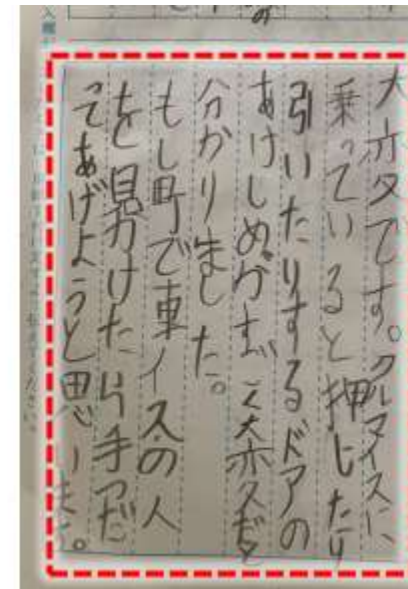 大変です。クルマイスに
乗っていると押したり
引いたりするドアの
あけしめがすごく大変だと
分かりました。
もし町で車イスの人
を見かけたら手つだ
ってあげようと思います。